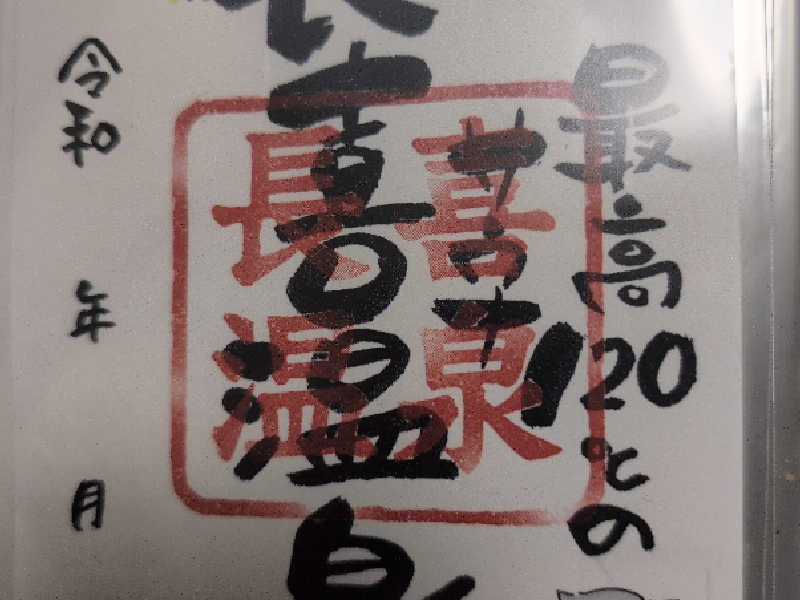 最高120℃の
サウナ
長喜温泉
長喜
温泉
令和 年 月